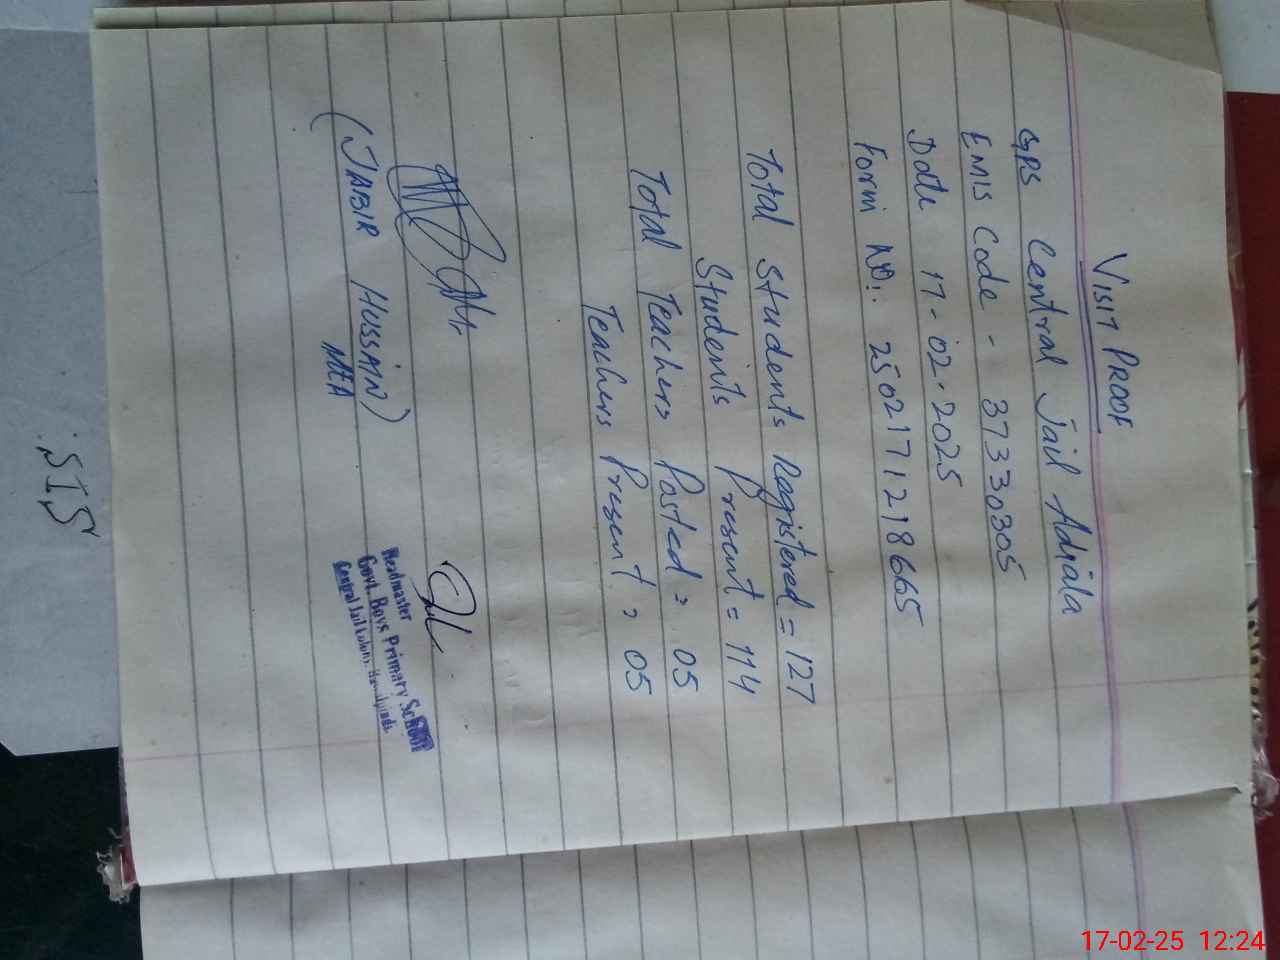 VISIT PROOF
GPS Central Jail Adiala
EMIS Code - 37330305
Date 17-02-2025
Form NO: 2502171218665
Total Students Registered = 127
Students present = 114
Total Teachers Posted = 05
Teachers Present = 05
(JABIR HUSSAIN)
MEA
Headmaster
Govt. Boys Primary School
Central Jail Colony, Rawalpindi
SIS
17-02-25 12:24